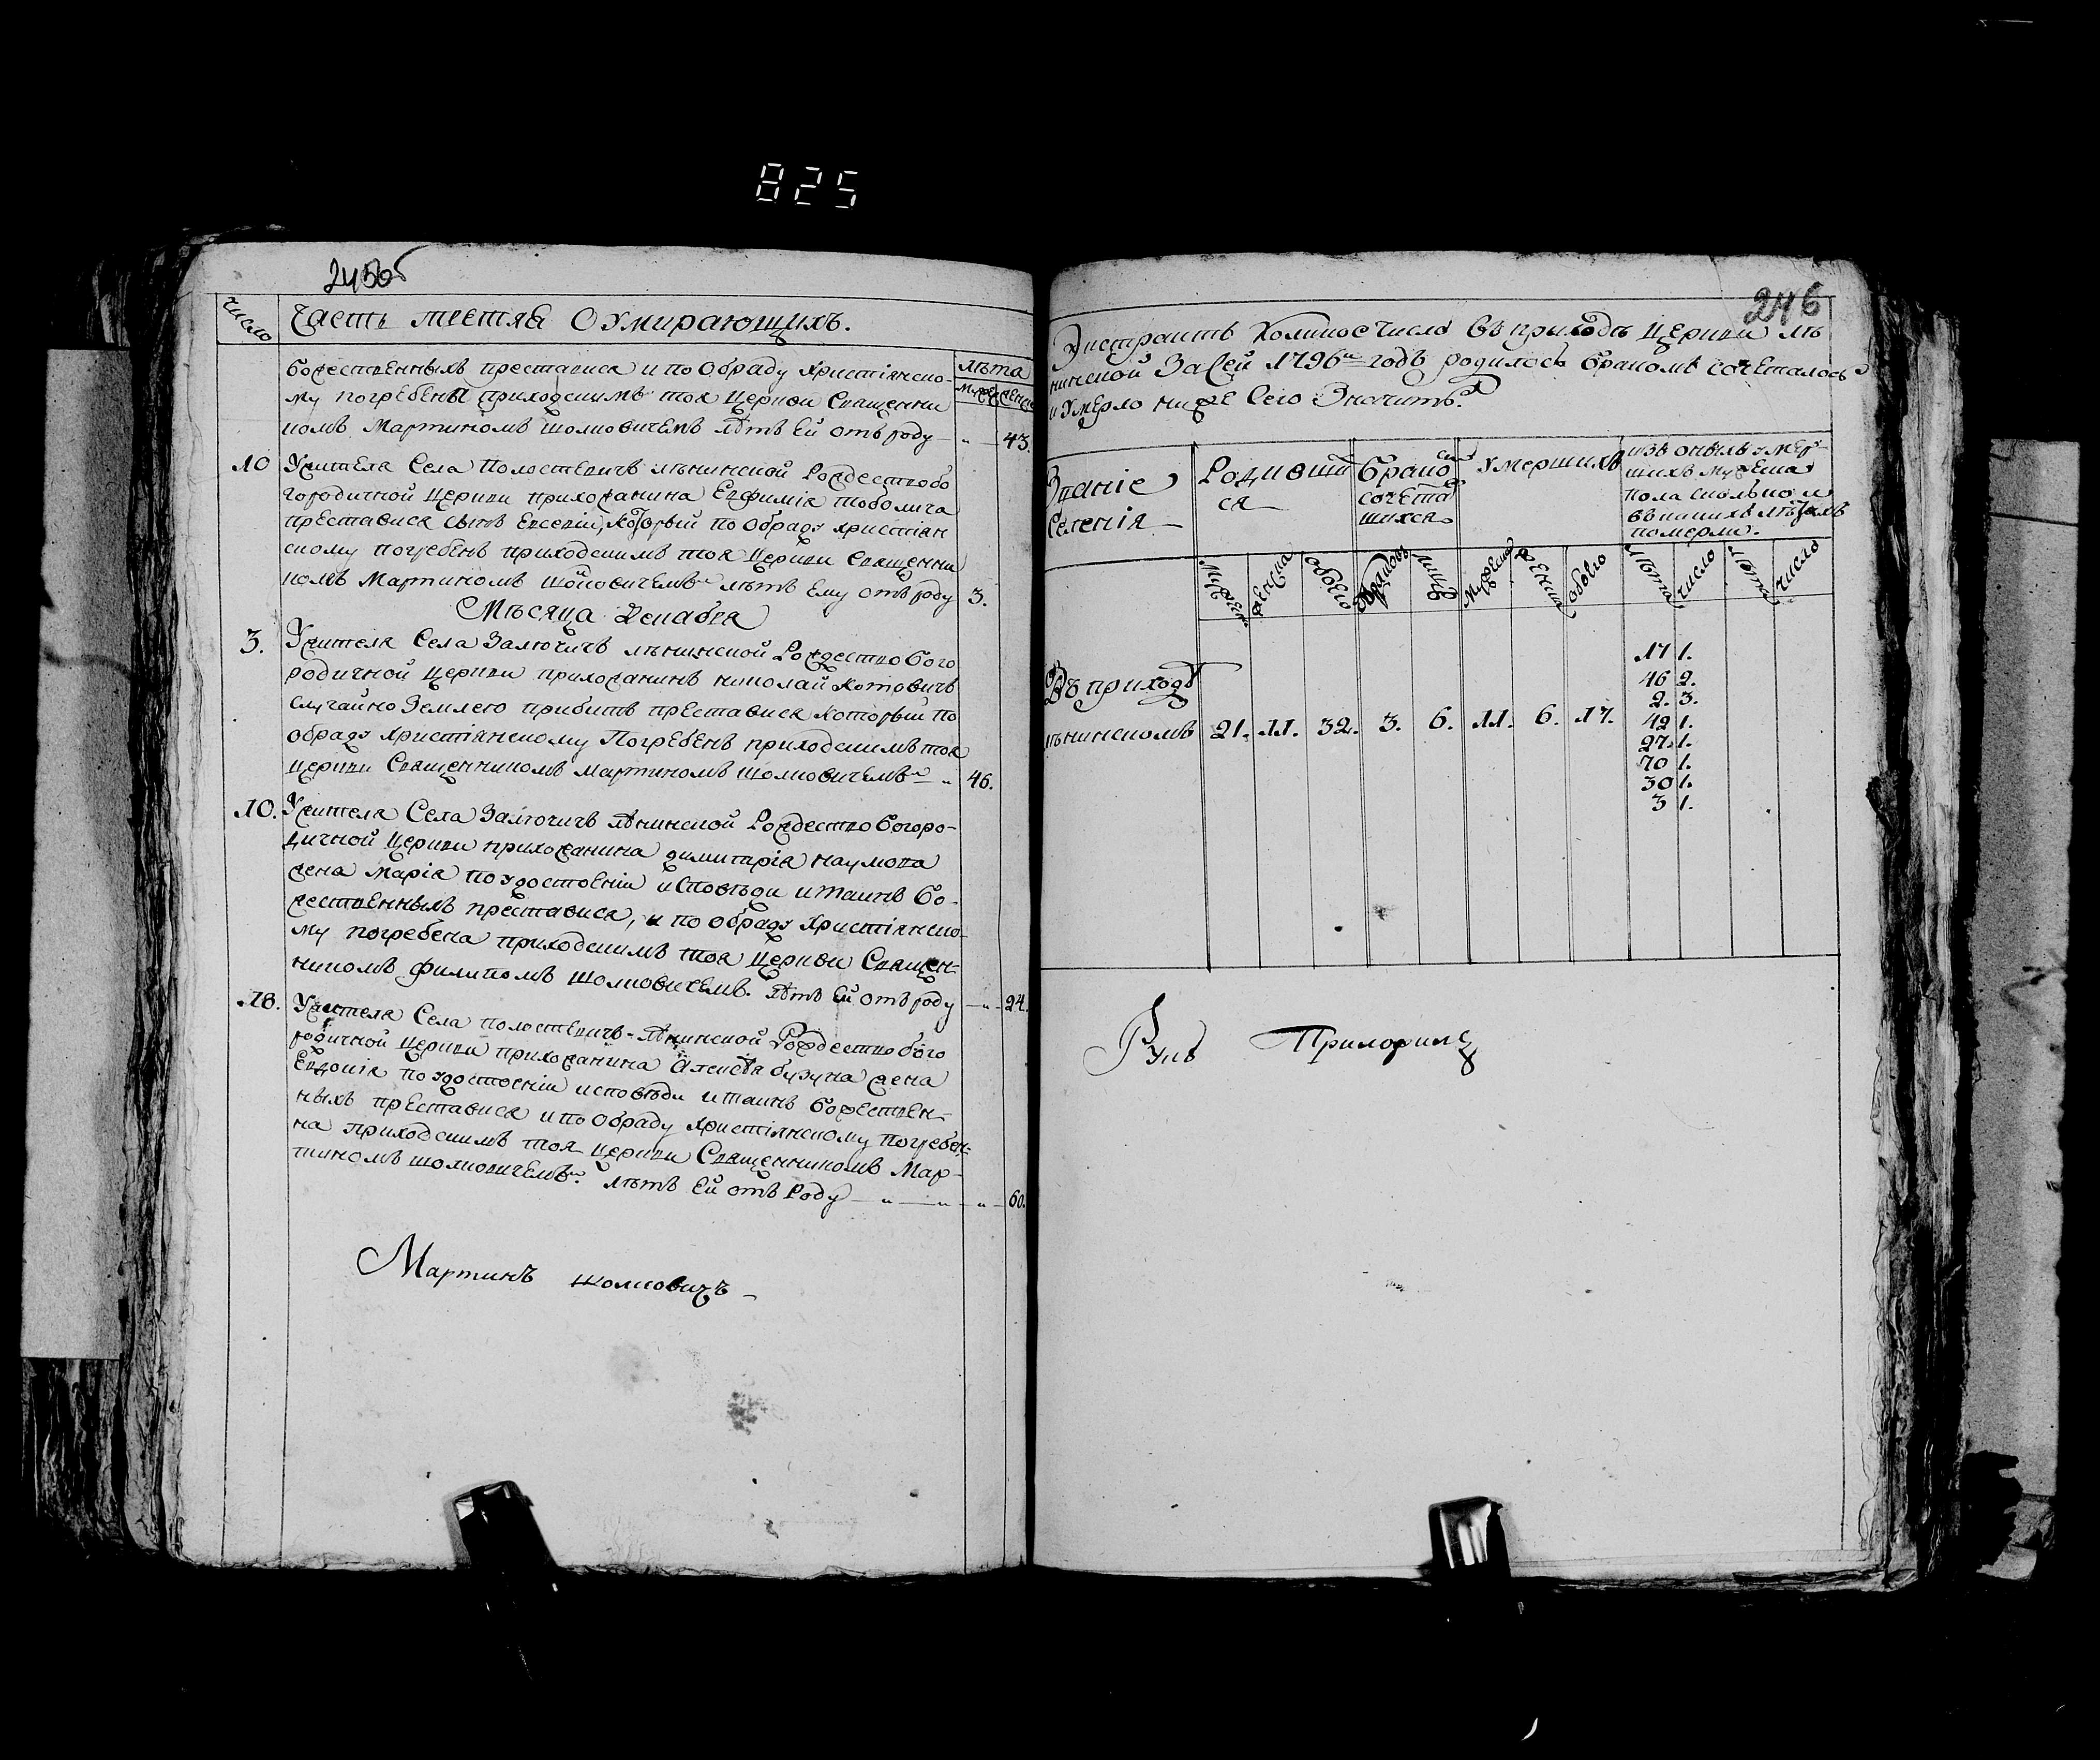 825
245об
число
Часть третяя О умирающихъ.
лѣта
божественныхъ преставися и по обряду христіянско-
му погребенъ приходскимъ тоя церкви священни
комъ Мартиномъ Шолковичемъ лѣтъ ей отъ роду 43.
10 Жителя села Полостевичъ лѣнинской Рождество бо
городичной церкви прихожанина Евфимія тоболича
преставися сынъ Евсевій, который по обряду христіян
скому погребенъ приходскимъ тоя церкви священни
комъ Мартиномъ Шолковичемъ лѣтъ ему отъ роду 3.
Мѣсяца Декабря
3. Жителя села Залючичъ лѣнинской Рождество Бого
родичной церкви прихожанинъ николай Котовичъ
случайно землею прибитъ преставися который по
обряду христіянскому погребенъ приходскимъ тоя
церкви священникомъ Мартиномъ Шолковичемъ 46.
10. Жителя села Залючичъ лѣнинской Рождество Богоро-
дичной церкви прихожанина димитрія наумова
жена Марія по удостоеніи исповѣди и таинъ бо-
жественныхъ преставися, и по обряду христіянско-
му погребена приходскимъ тоя церкви священ-
никомъ филипомъ Шолковичемъ. лѣтъ ей отъ роду 24.
18. Жителя села Полостевичъ лѣнинской Рождество бого
родичной церкви прихожанина Алексѣя бузуна жена
Евдокія по удостоеніи исповѣди и таинъ божествен-
ныхъ преставися и по обряду христіянскому погребен-
на приходскимъ тоя церкви священникомъ Мар-
тиномъ Шолковичемъ. лѣтъ ей отъ роду 60.
Мартинъ Шолковичъ
246
Экстрактъ коликое число въ приходѣ церкви лѣ
нинской за сей 1796й годъ родилось бракомъ сочеталось
и умерло ниже сего значитъ.
Званіе селенія
Родивши ся
Брако сочета шихся
Умершихъ
изъ оныхъ умер-
шихъ мужеска
пола сколько и
въ какихъ лѣтахъ
померли.
Мужес женска обоего браковъ лицъ мужеска женска обоего лѣта число лѣта число
Въ приходѣ
лѣнинскомъ 21. 11. 32. 3. 6. 11. 6. 17.
17 1.
46 2.
2. 3.
42 1.
27. 1.
70 1.
30 1.
3 1.